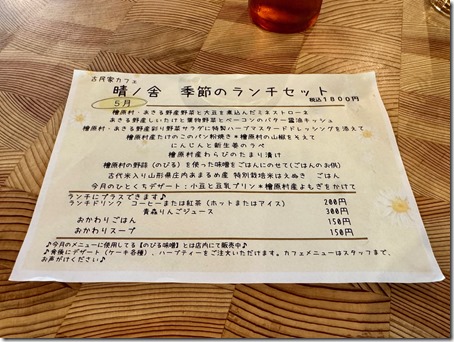 古民家カフェ
晴ノ舎 季節のランチセット
5月
税込1800円
檜原村・あきる野産野菜と大豆を煮込んだミネストローネ
あきる野産しいたけと葉特野菜とベーコンのバター醤油キッシュ
檜原村・あきる野産彩り野菜サラダに特製ハーブマスタードドレッシングを添えて
檜原村産たけのこのパン粉焼き*檜原村の山椒を与えて
にんじんと新生姜のラペ
檜原村産わらびのたまり漬け
檜原村の野蒜（のびる）を使った味噌をごはんにのせて(ごはんのお供)
古代米入り山形県庄内あまるめ産 特別栽培米はえぬき ごはん
今月のひとくちデザート：小豆と豆乳プリン*檜原村産よもぎをかけて
ランチにプラスできます♪
ランチドリンク コーヒーまたは紅茶（ホットまたはアイス） 200円
青森りんごジュース 300円
おかわりごはん 150円
おかわりスープ 150円
♪今月のメニューに使用してる【のびる味噌】とは店内にて販売中♪
♪食後にデザート（ケーキ各種）、ハーブティーをご注文いただけます。カフェメニューはスタッフまで、
お声がけください♪